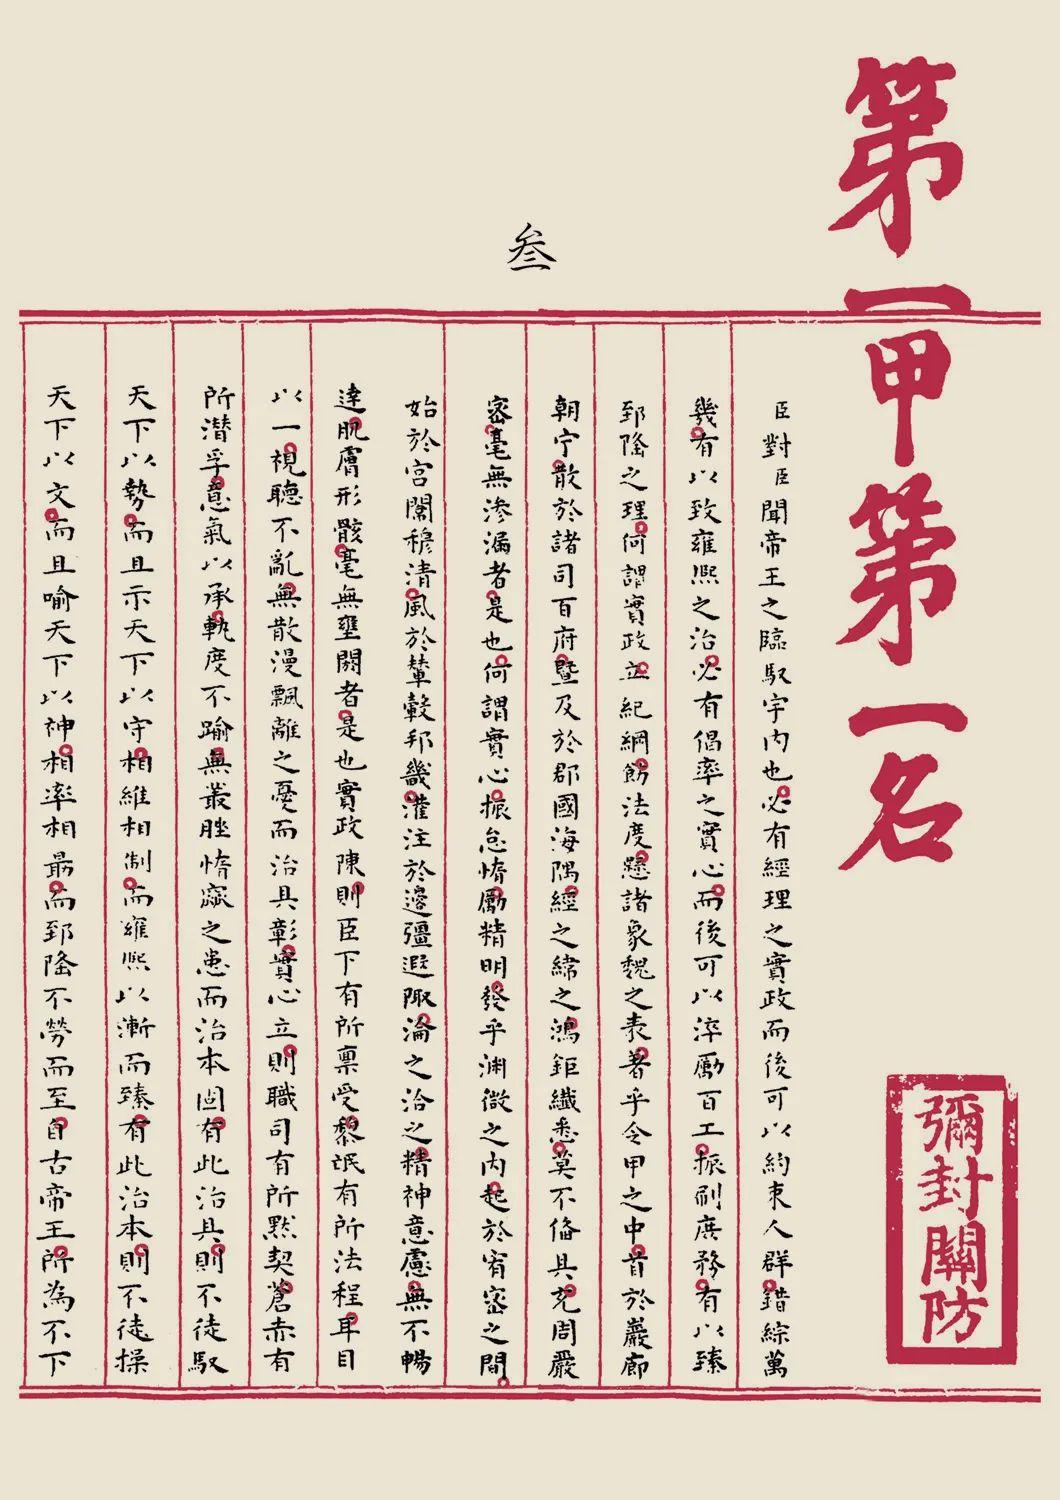 第一甲第一名
彌封關防
叁
臣對臣聞帝王之臨馭宇內也必有經理之實政而後可以約束人群錯綜萬
幾有以致雍熙之治必有倡率之實心而後可以淬勵百工振刷庶務有以臻
郅隆之理何謂實政立紀綱飭法度懸諸象魏之表著乎令甲之中首於巖廊
朝宁散於諸司百府暨及於郡國海隅經之緯之鴻鉅纖悉莫不偹具充周嚴
密毫無滲漏者是也何謂實心振怠惰勵精明發乎淵微之內起於宥密之間
始於宮闈穆清風於輦轂邦畿灌注於邊疆遐陬淪之洽之精神意慮無不暢
達肌膚形骸毫無壅閼者是也實政陳則臣下有所稟受黎氓有所法程耳目
以一視聽不亂無散漫飄離之憂而治具彰實心立則職司有所默契蒼赤有
所潛孚意氣以承軌度不踰無叢脞惰窳之患而治本固有此治具則不徒馭
天下以勢而且示天下以守相維相制而雍熙以漸而臻有此治本則不徒操
天下以文而且喻天下以神相率相最而郅隆不勞而至自古帝王所為不下